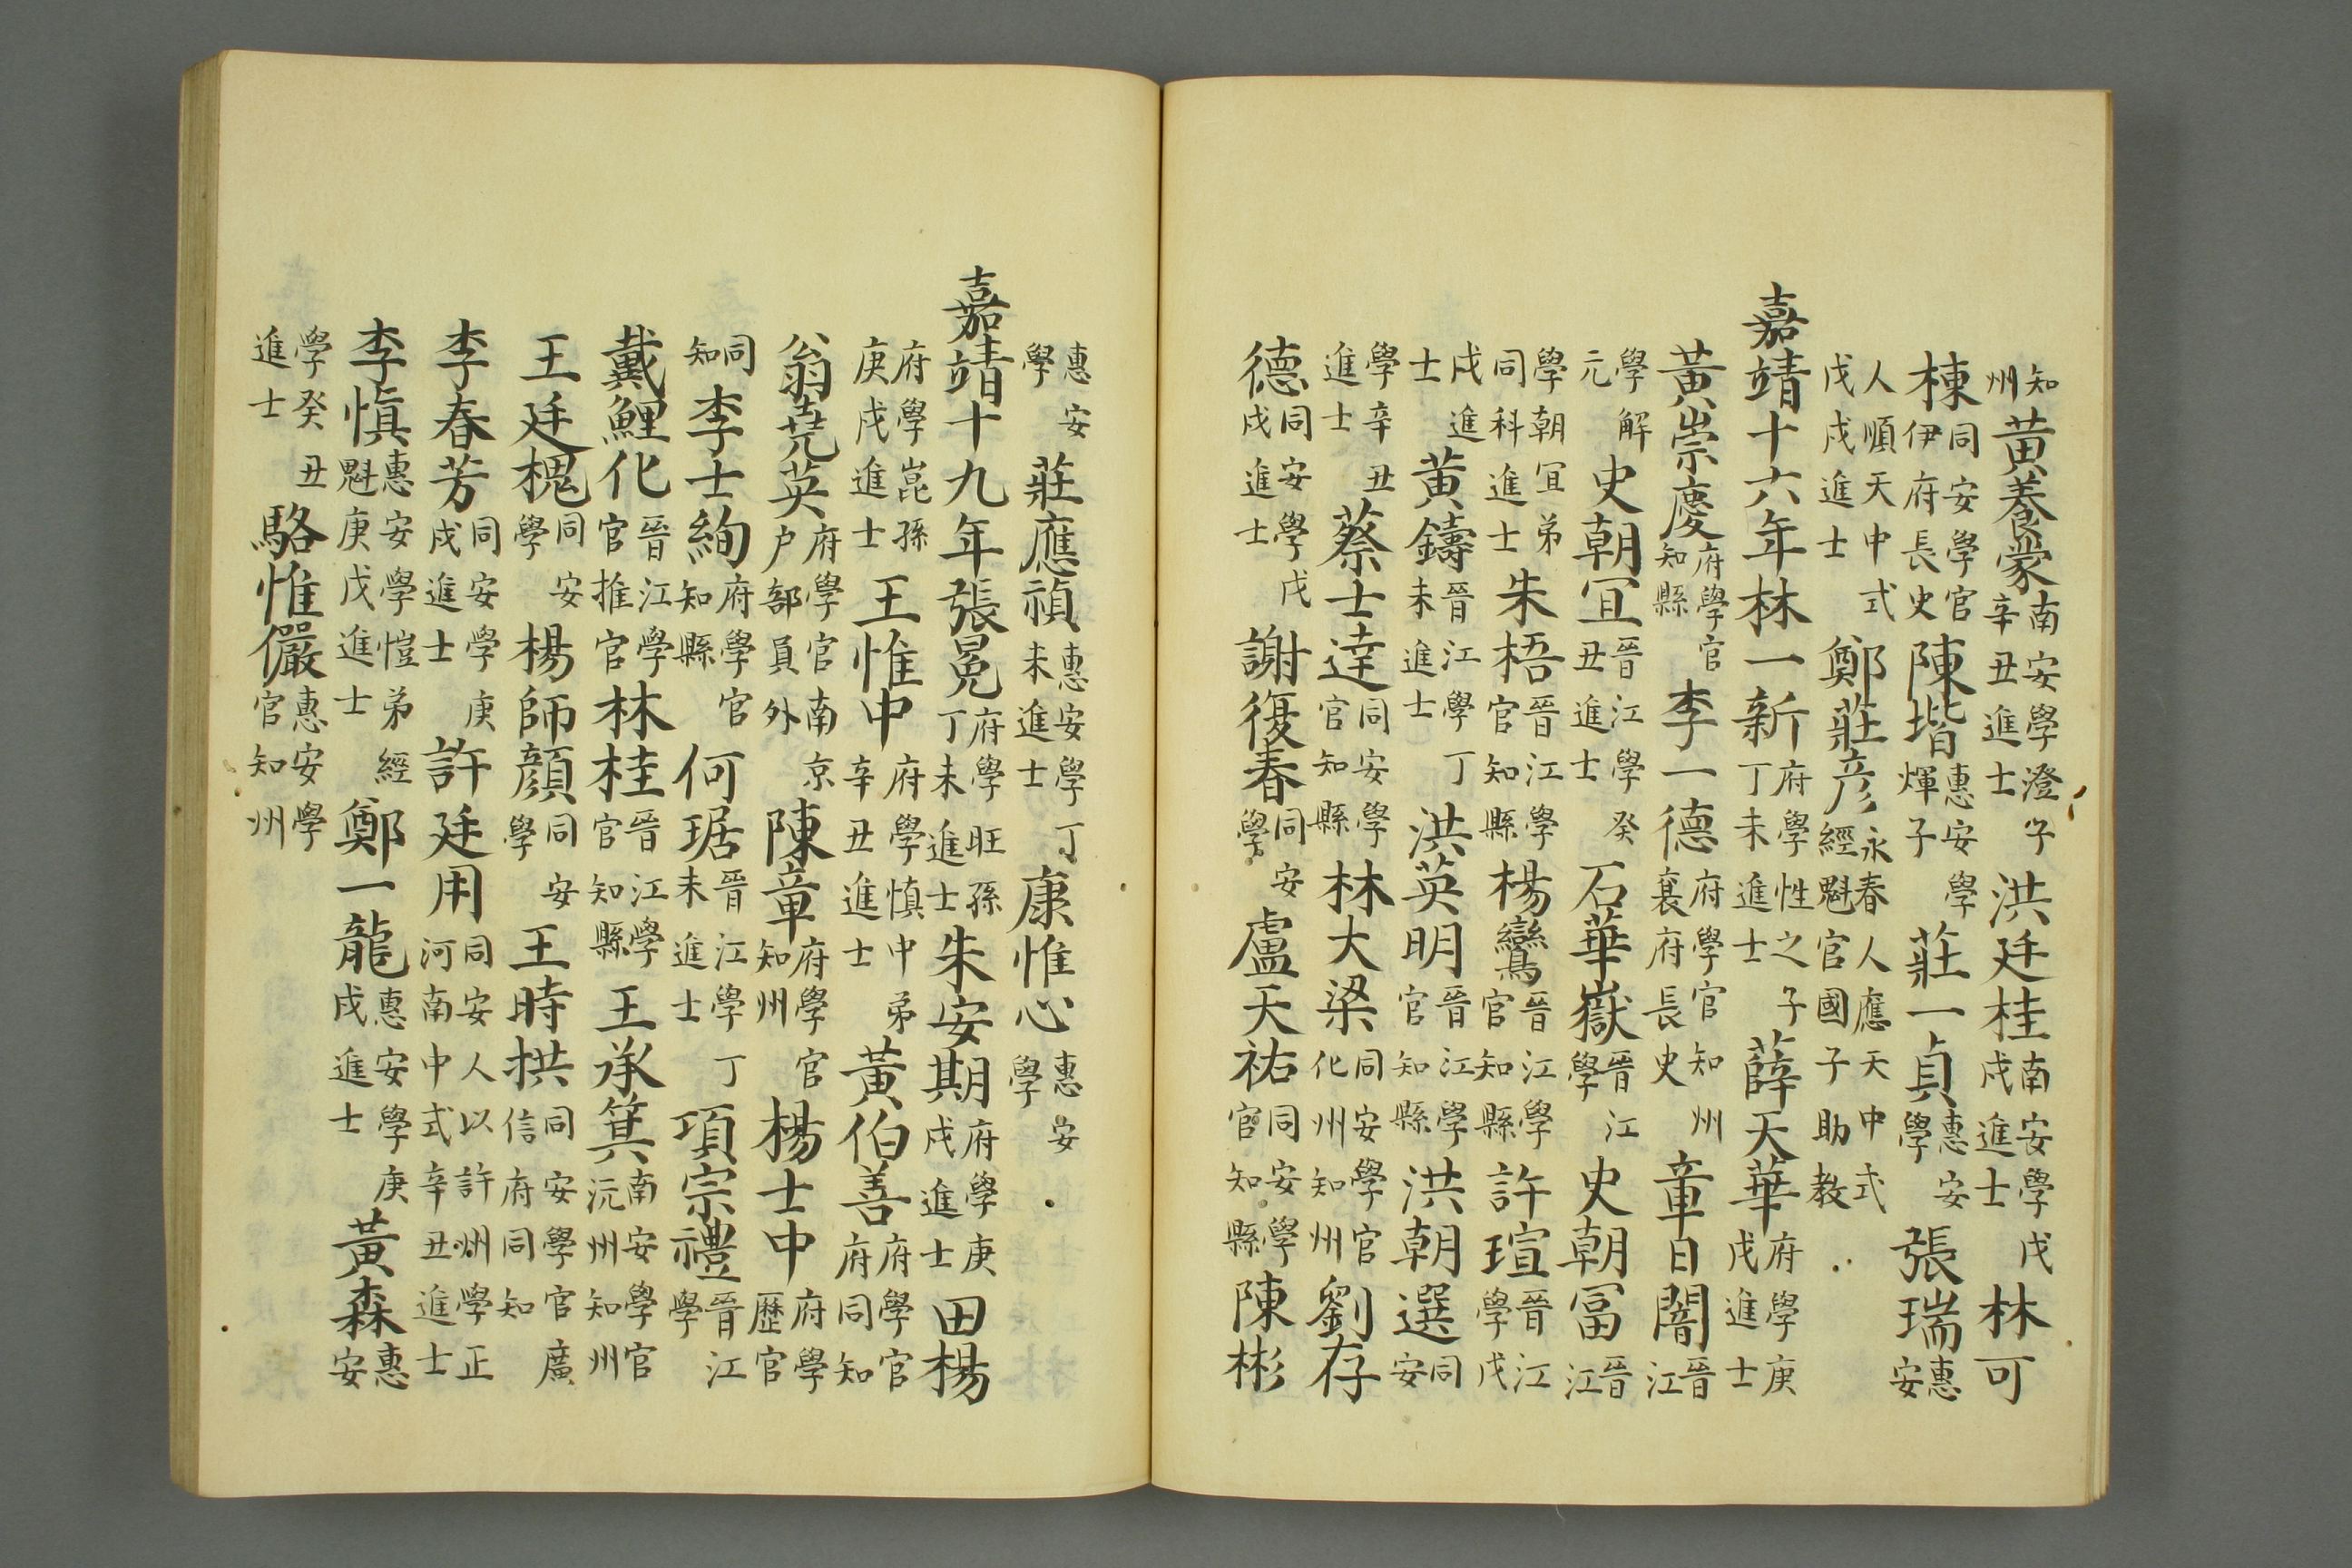 知州黄養蒙南安學澄子辛丑進士洪廷桂南安學戊戌進士林可
棟同安學官伊府長史陳堦惠安學煇子莊一貞惠安學張瑞惠安
人順天中式戊戌進士鄭莊彦永春人應天中式經魁官國子助教
嘉靖十六年林一新府學性之子丁未進士薛天華府學庚戌進士
黄崇慶府學官知縣李一德府學官知州襄府長史章日闇晉江
學解元史朝冝晉江學癸丑進士石華嶽晉江學史朝冨晉江
學朝冝弟同科進士朱梧晉江學官知縣楊鸞晉江學官知縣許瑄晉江學戊
戌進士黄鑄晉江學丁未進士洪英明晉江學官知縣洪朝選同安
學辛丑進士蔡士逹同安學官知縣林大梁同安學官化州知州劉存
德同安學戊戌進士謝復春同安學盧天祐同安學官知縣陳彬
惠安學莊應禎惠安學丁未進士康惟心惠安學
嘉靖十九年張冕府學旺孫丁未進士朱安期府學庚戌進士田楊
府學崑孫庚戌進士王惟中府學慎中弟辛丑進士黃伯善府學官府同知
翁堯英府學官南京户部員外陳章府學官知州楊士中府學歷官
同知李士絢府學官知縣何琚晉江學丁未進士項宗禮晉江學
戴鯉化晉江學官推官林桂晉江學官知縣王承箕南安學官沅州知州
王廷槐同安學楊師顔同安學王時拱同安學官廣信府同知
李春芳同安學庚戌進士許廷用同安人以許州學正河南中式辛丑進士
李慎惠安學愷弟經魁庚戌進士鄭一龍惠安學庚戌進士黃森惠安
學癸丑進士駱惟儼惠安學官知州